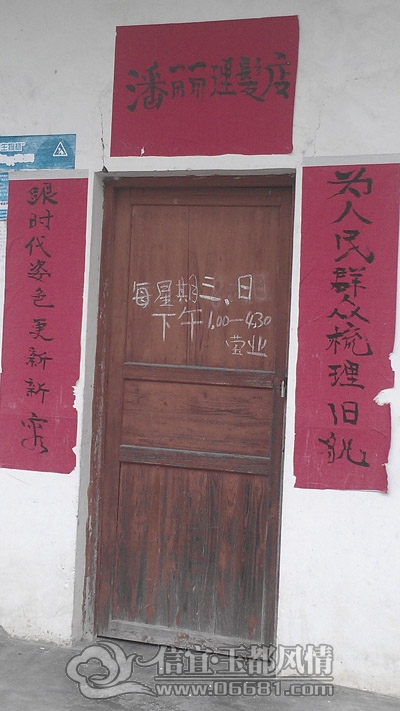 潘丽理髮店
为人民群众梳理旧貌
跟时代姿色更新新容
每星期三、日
下午1.00—4.30
营业
信宜·玉都风情
www.06681.com